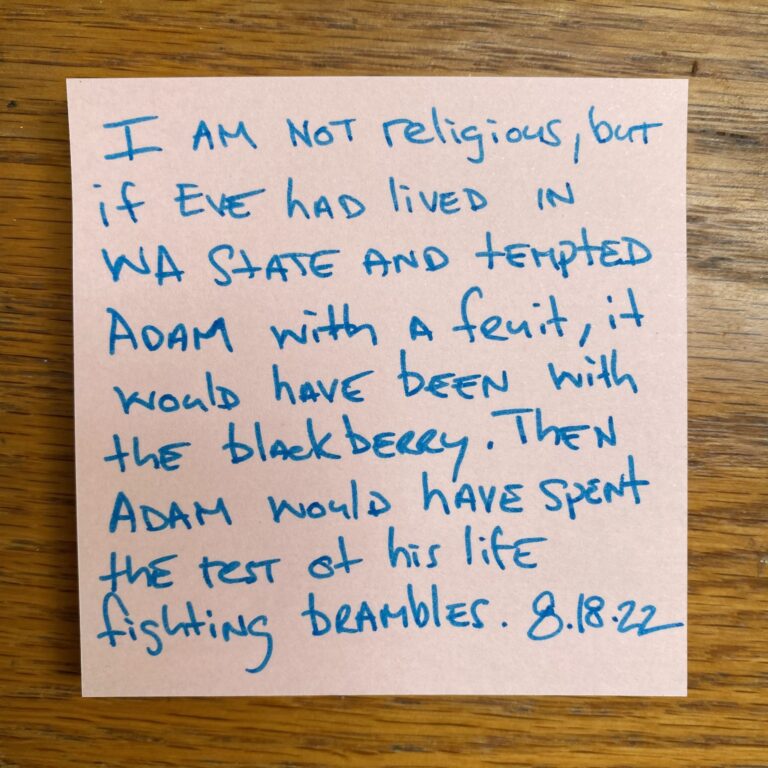 I AM NOT religious, but
if EVE HAD lived IN
WA STATE AND tempted
ADAM with A fruit, it
would have been with
the blackberry. Then
ADAM would have spent
the rest of his life
fighting brambles. 8.18.22